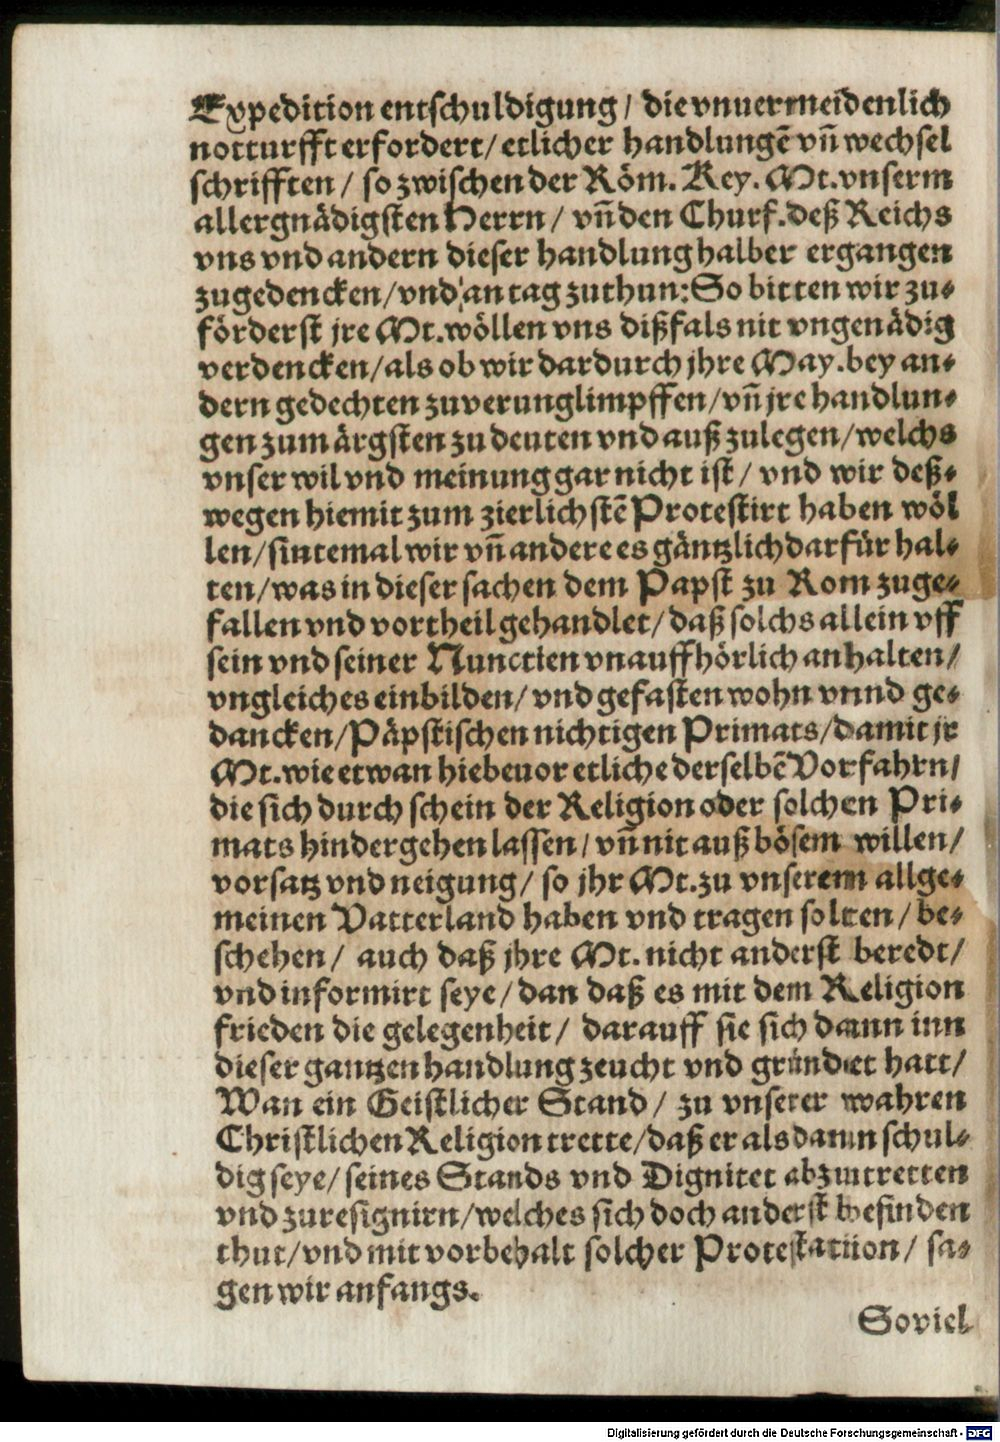 Expedition entschuldigung / die vnuermeidenlich
notturfft erfordert / etlicher handlungẽ vñ wechsel
schrifften / so zwischen der Röm. Key. Mt. vnserm
allergnädigsten Herrn / vñ den Churf. deß Reichs
vns vnd andern dieser handlung halber ergangen
zugedencken / vnd an tag zuthun: So bitten wir zu-
förderst jre Mt. wöllen vns dißfals nit vngenädig
verdencken / als ob wir dardurch jhre May. bey an-
dern gedechten zuverunglimpffen / vñ jre handlun-
gen zum ärgsten zu deuten vnd auß zulegen / welchs
vnser wil vnd meinung gar nicht ist / vnd wir deß-
wegen hiemit zum zierlichstẽ Protestirt haben wöl
len / sintemal wir vñ andere es gäntzlich darfür hal-
ten / was in dieser sachen dem Papst zu Rom zuge-
fallen vnd vortheil gehandlet / daß solchs allein vff
sein vnd seiner Nunctien vnauffhörlich anhalten /
vngleiches einbilden / vnd gefasten wohn vnnd ge-
dancken / Päpstischen nichtigen Primats / damit jr
Mt. wie etwan hiebeuor etliche derselbẽ Vorfahrn /
die sich durch schein der Religion oder solchen Pri-
mats hindergehen lassen / vñ nit auß bösem willen /
vorsatz vnd neigung / so jhr Mt. zu vnserem allge-
meinen Vatterland haben vnd tragen solten / be-
schehen / auch daß jhre Mt. nicht anderst beredt /
vnd informirt seye / dan daß es mit dem Religion
frieden die gelegenheit / darauff sie sich dann inn
dieser gantzen handlung zeucht vnd gründet hatt /
Wan ein Geistlicher Stand / zu vnserer wahren
Christlichen Religion trette / daß er als dann schul-
dig seye / seines Stands vnd Dignitet abzutretten
vnd zuresignirn / welches sich doch anderst befinden
thut / vnd mit vorbehalt solcher Protestation / sa-
gen wir anfangs.
Soviel
Digitalisierung gefördert durch die Deutsche Forschungsgemeinschaft - DFG